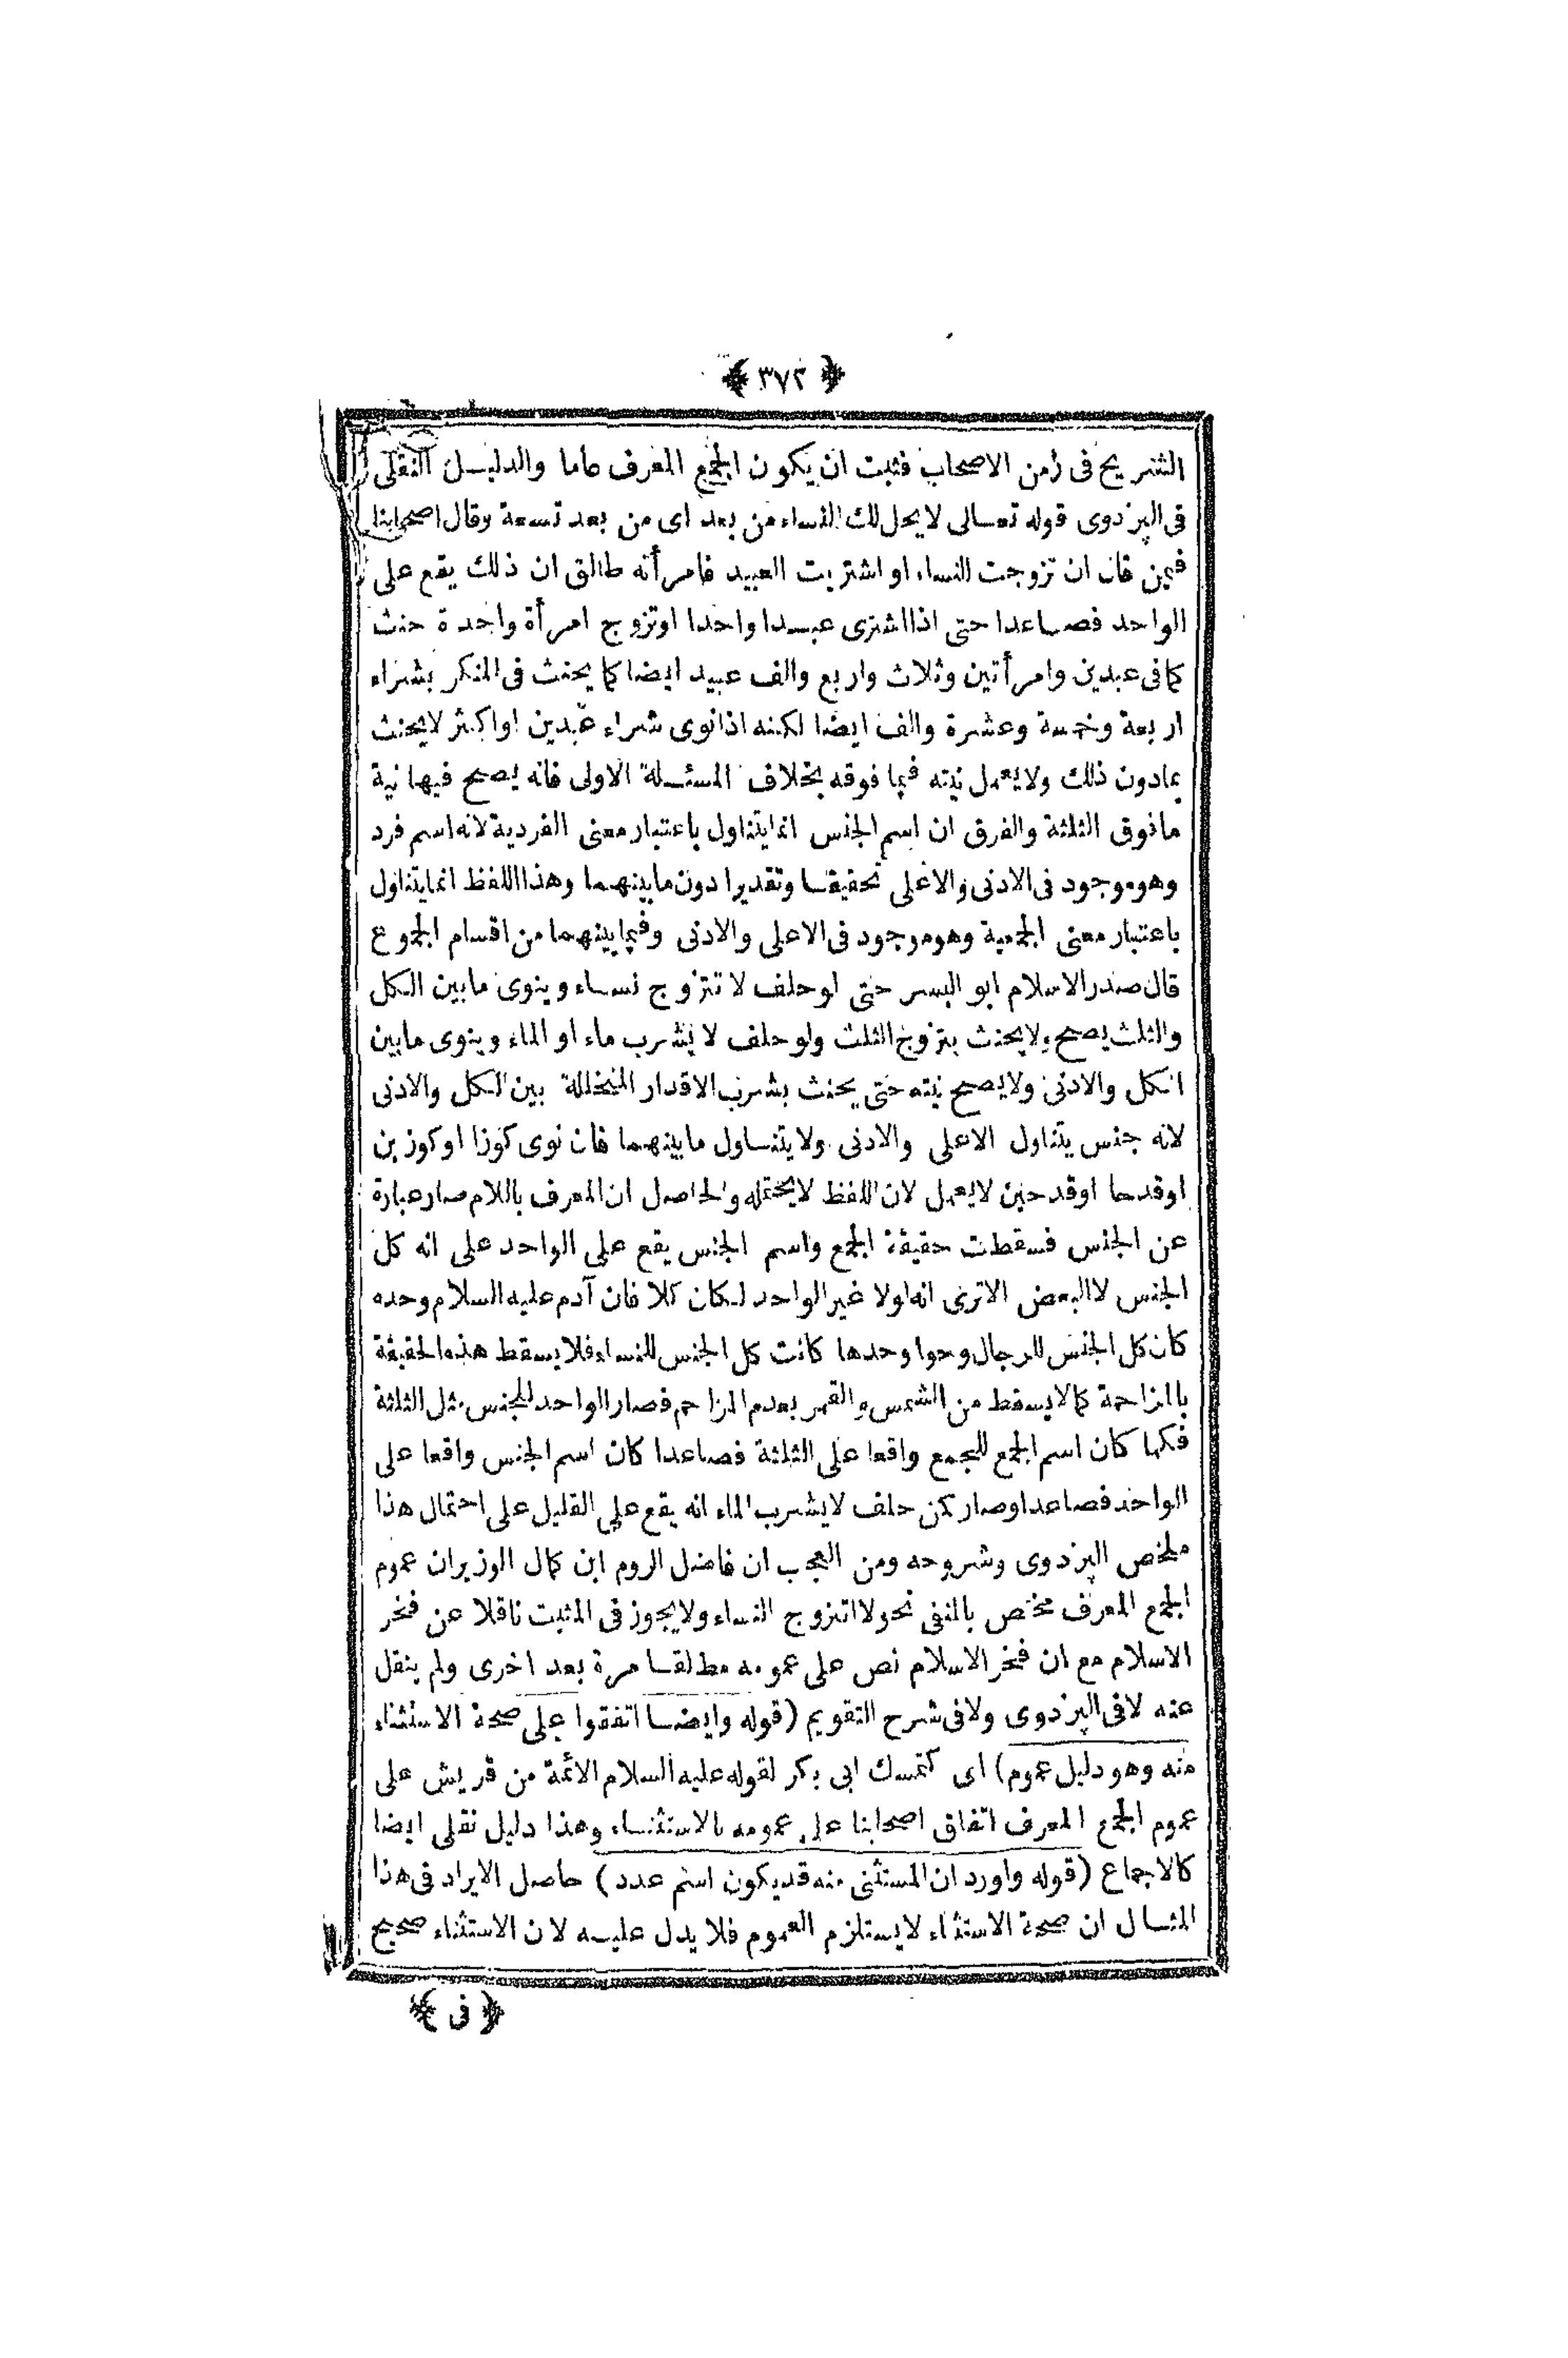 ﴿ ٣٧٢ ﴾
التشريح فى زمن الاصحاب فثبت ان يكون الجمع المعرف عاما والدليل النقلى
فى البزدوى قوله تعالى لا يحل لك النساء من بعد اى من بعد تسعة وقال اصحابنا
فيمن قال ان تزوجت النساء او اشتريت العبيد فامرأته طالق ان ذلك يقع على
الواحد فصاعدا حتى اذا اشترى عبدا واحدا او تزوج امرأة واحدة حنث
كما فى عبدين وامرأتين وثلاث واربع والف عبيد ايضا كما يحنث فى المنكر بشراء
اربعة وخمسة وعشرة والف ايضا لكنه اذا نوى شراء عبدين او اكثر لا يحنث
بمادون ذلك ولا يعمل نيته فيما فوقه بخلاف المسئلة الاولى فانه يصح فيها نية
ما فوق الثلثة والفرق ان اسم الجنس انما يتناول باعتبار معنى الفردية لانه اسم فرد
وهو موجود فى الادنى والاعلى تحقيقا وتقديرا دون ما بينهما وهذا اللفظ انما يتناول
باعتبار معنى الجمعية وهو موجود فى الاعلى والادنى وفيما بينهما من اقسام الجموع
قال صدر الاسلام ابو اليسر حتى لو حلف لا تتزوج نساء وينوى ما بين الكل
والثلث يصح ولا يحنث بتزوج الثلث ولو حلف لا يشرب ماء او الماء وينوى ما بين
الكل والادنى ولا يصح نيته حتى يحنث بشرب الاقدار المتخللة بين الكل والادنى
لانه جنس يتناول الاعلى والادنى ولا يتناول ما بينهما فان نوى كوزا او كوزين
او قدحا او قدحين لا يعمل لان اللفظ لا يحتمله والحاصل ان المعرف باللام صار عبارة
عن الجنس فسقطت حقيقة الجمع واسم الجنس يقع على الواحد على انه كل
الجنس لا البعض الا ترى انه لولا غير الواحد لكان كلا فان آدم عليه السلام وحده
كان كل الجنس للرجال وحوا وحدها كانت كل الجنس للنساء فلا يسقط هذه الحقيقة
بالمزاحمة كما لا يسقط من الشمس والقمر بعدم المزاحم فصار الواحد للجنس مثل الثلثة
فكما كان اسم الجمع للجمع واقعا على الثلثة فصاعدا كان اسم الجنس واقعا على
الواحد فصاعدا وصار كمن حلف لا يشرب الماء انه يقع على القليل على احتمال هذا
ملخص البزدوى وشروحه ومن العجب ان فاضل الروم ابن كمال الوزير ان عموم
الجمع المعرف مختص بالمنفى نحو لا اتزوج النساء ولا يجوز فى المثبت ناقلا عن فخر
الاسلام مع ان فخر الاسلام نص على عمومه مطلقا مرة بعد اخرى ولم ينقل
عنه لا فى البزدوى ولا فى شرح التقويم (قوله وايضا اتفقوا على صحة الاستثناء
منه وهو دليل عموم) اى كتمسك ابى بكر لقوله عليه السلام الائمة من قريش على
عموم الجمع المعرف اتفاق اصحابنا على عمومه بالاستثناء وهذا دليل نقلى ايضا
كالاجماع (قوله واورد ان المستثنى منه قد يكون اسم عدد) حاصل الايراد فى هذا
المثال ان صحة الاستثناء لا يستلزم العموم فلا يدل عليه لان الاستثناء صحيح
﴿ فى ﴾